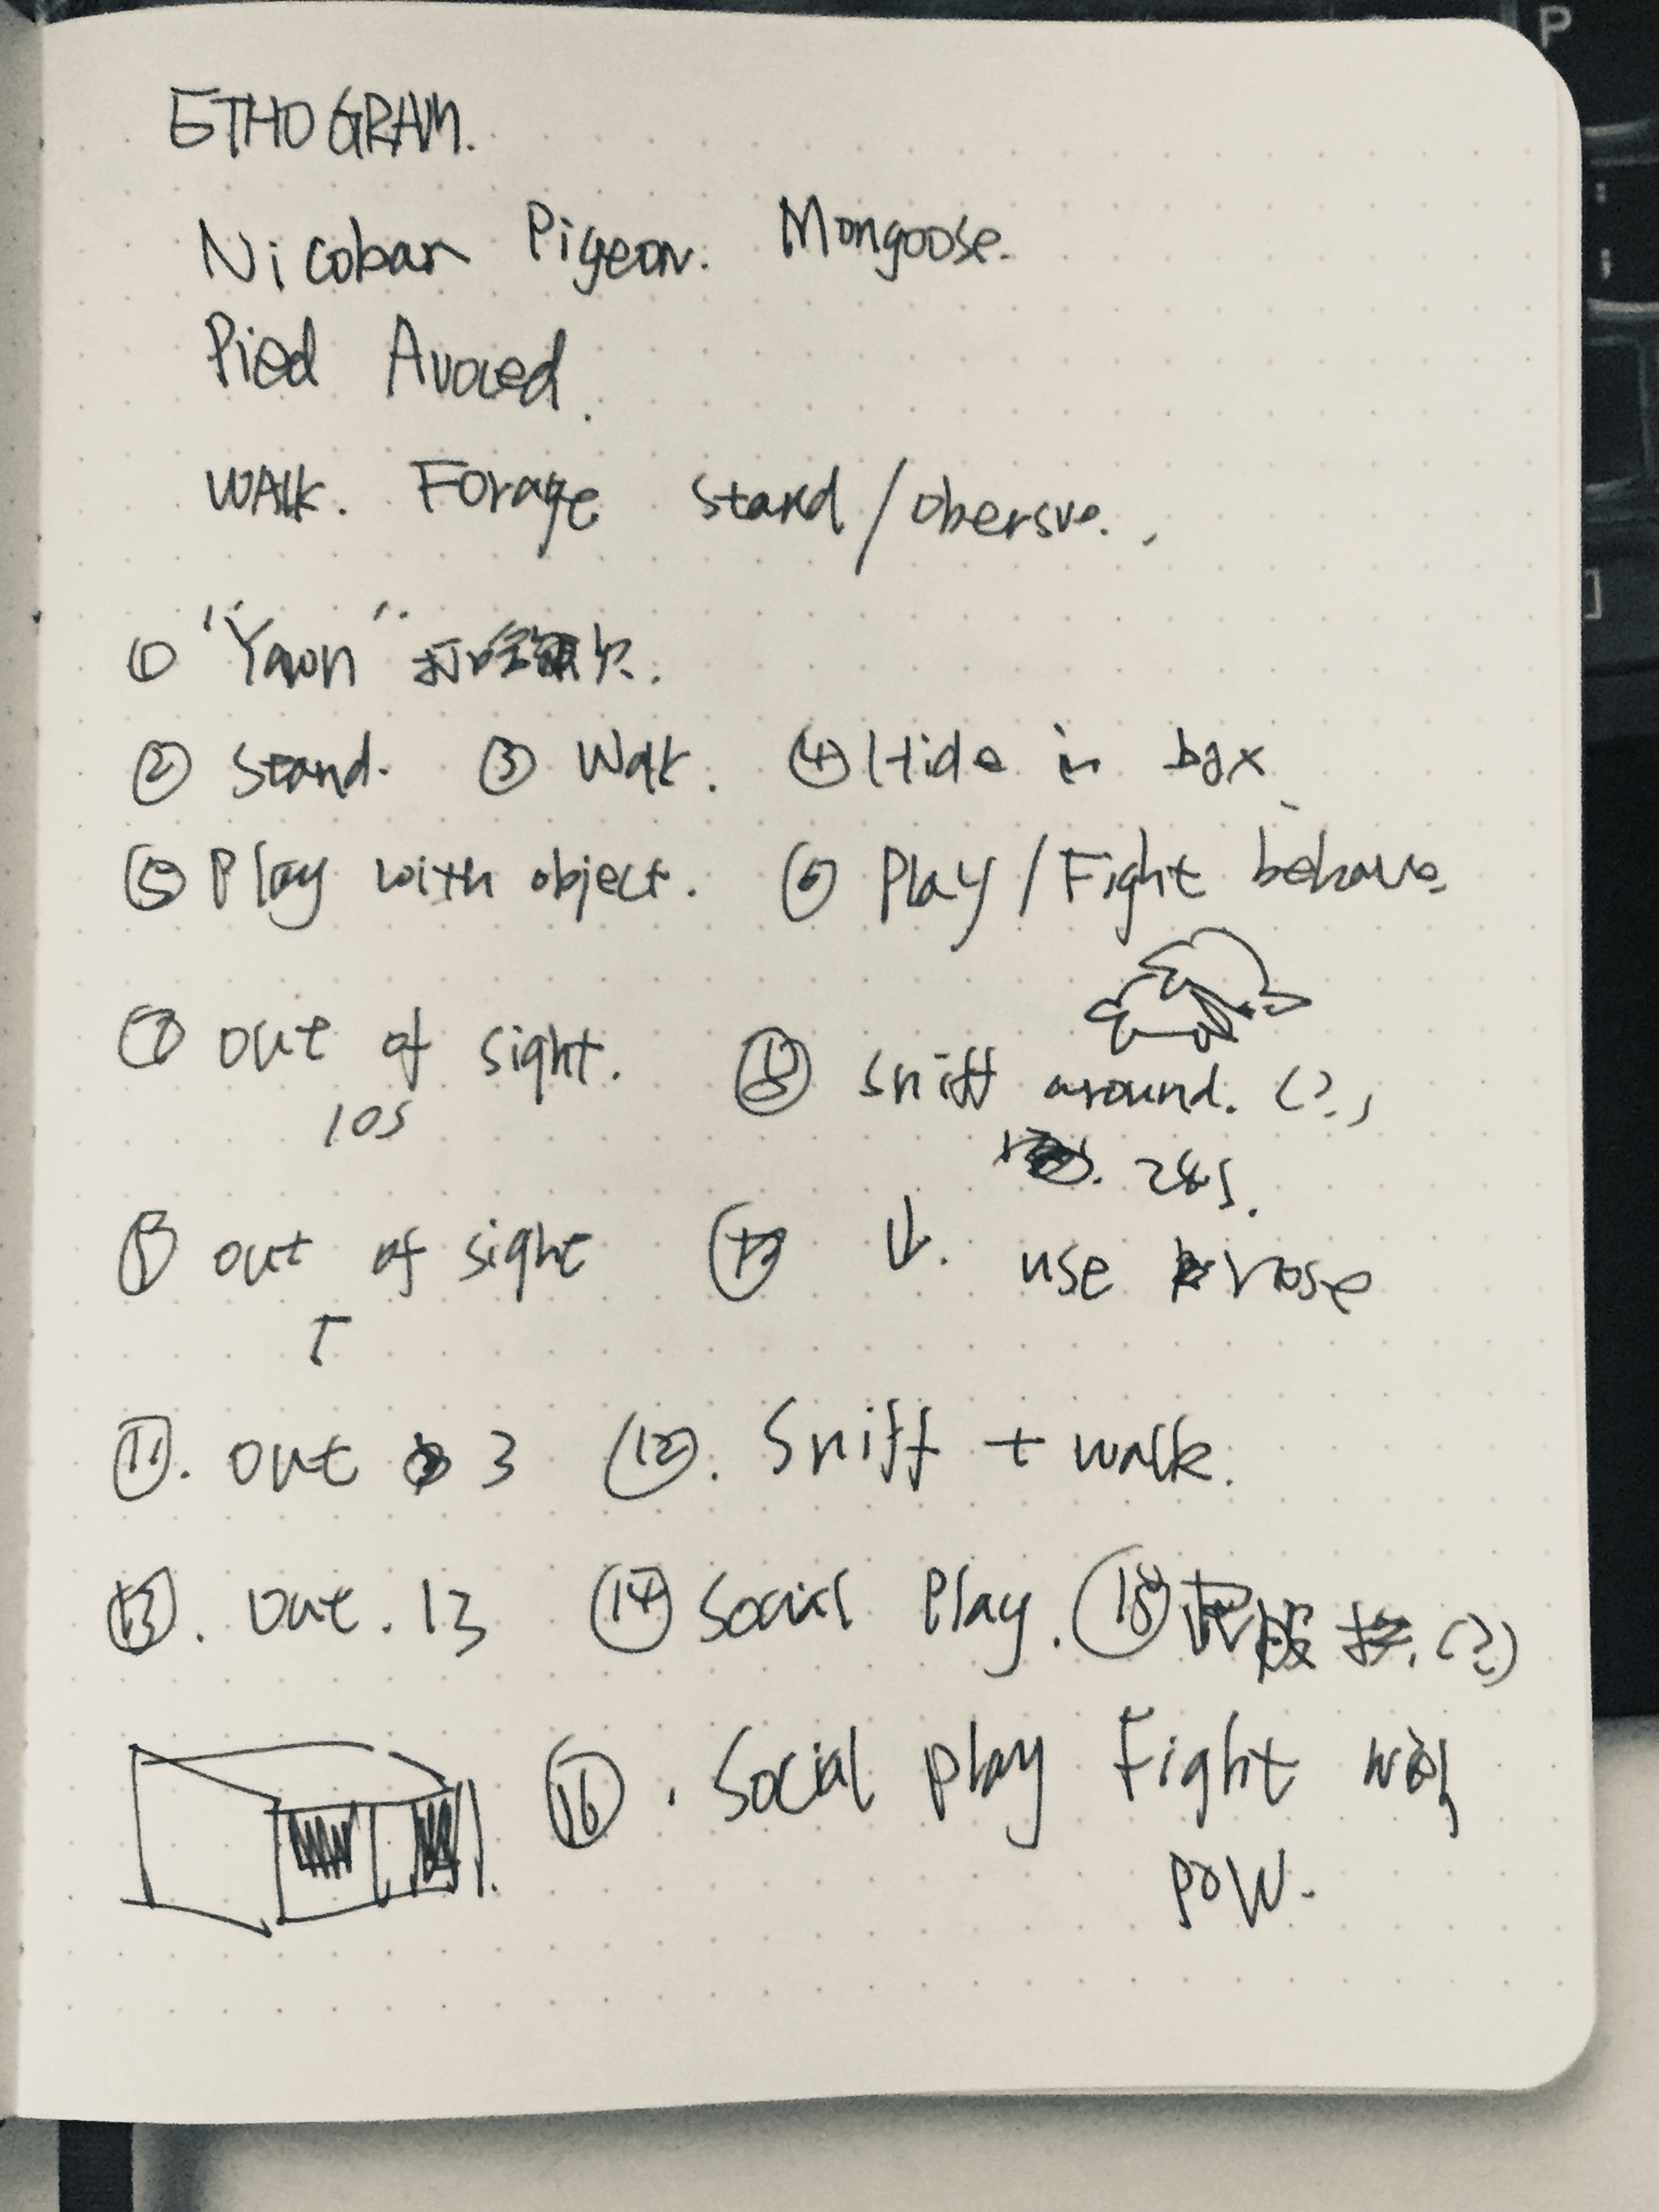 ETHOGRAM.
Nicobar Pigeon. Mongoose.
Pied Avoced.
WAlk. Forage stand/obersve.
① "Yawn" 打哈欠.
② Stand. ③ Walk. ④ Hide in box
⑤ Play with object. ⑥ Play/Fight behave.
⑦ out of sight. sniff around. (?)
10s 28s.
out of sight ↓. use nose
5
⑪. out 3 ⑫. Sniff + walk.
⑬. out. 13 ⑭ Social Play. ⑮ (?)
⑯. Social play Fight with
pow.
P